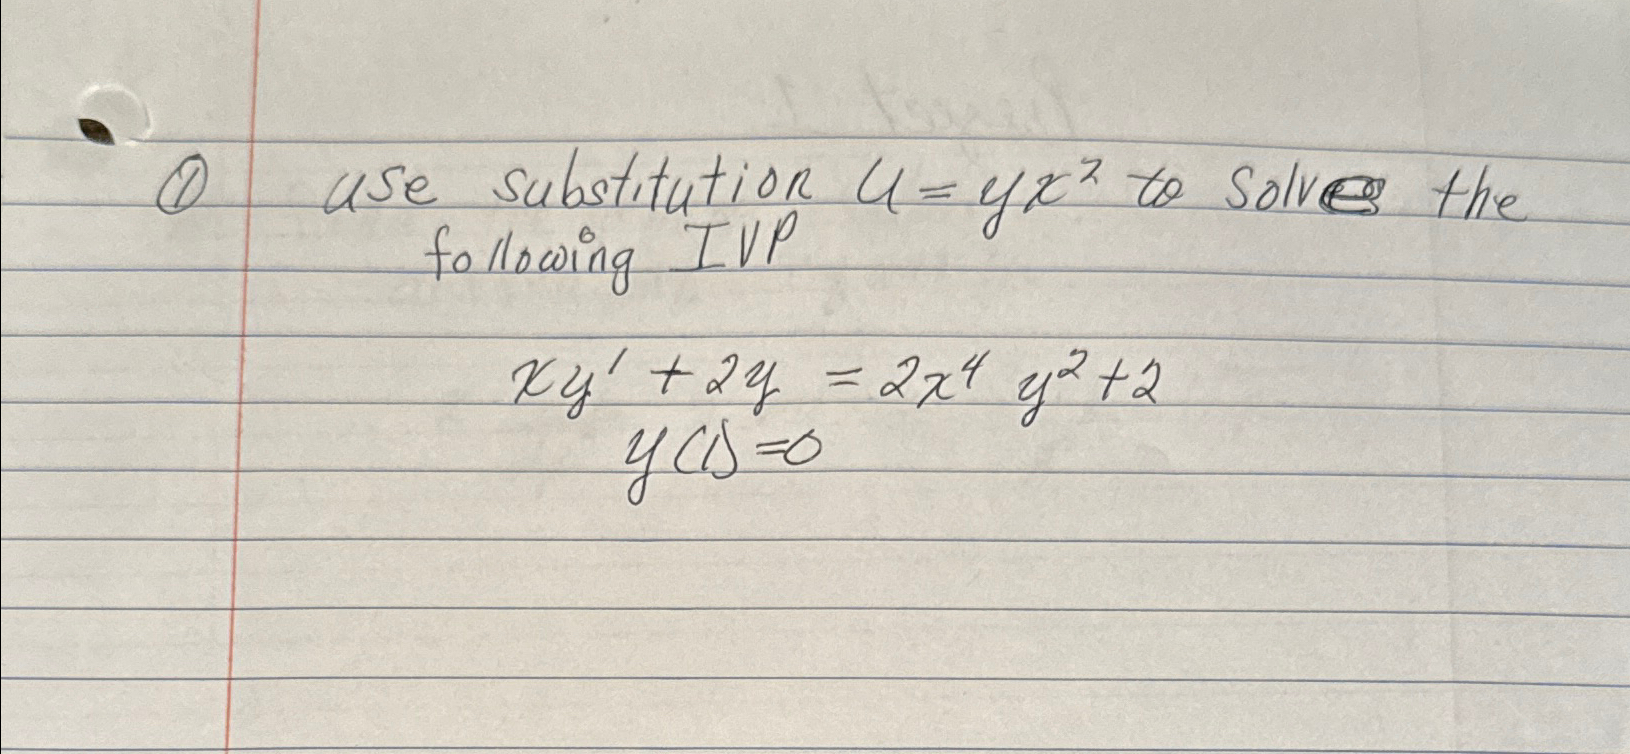 ① use substitution u = yx² to solve the
following IVP
xy' + 2y = 2x⁴ y² + 2
y(1) = 0